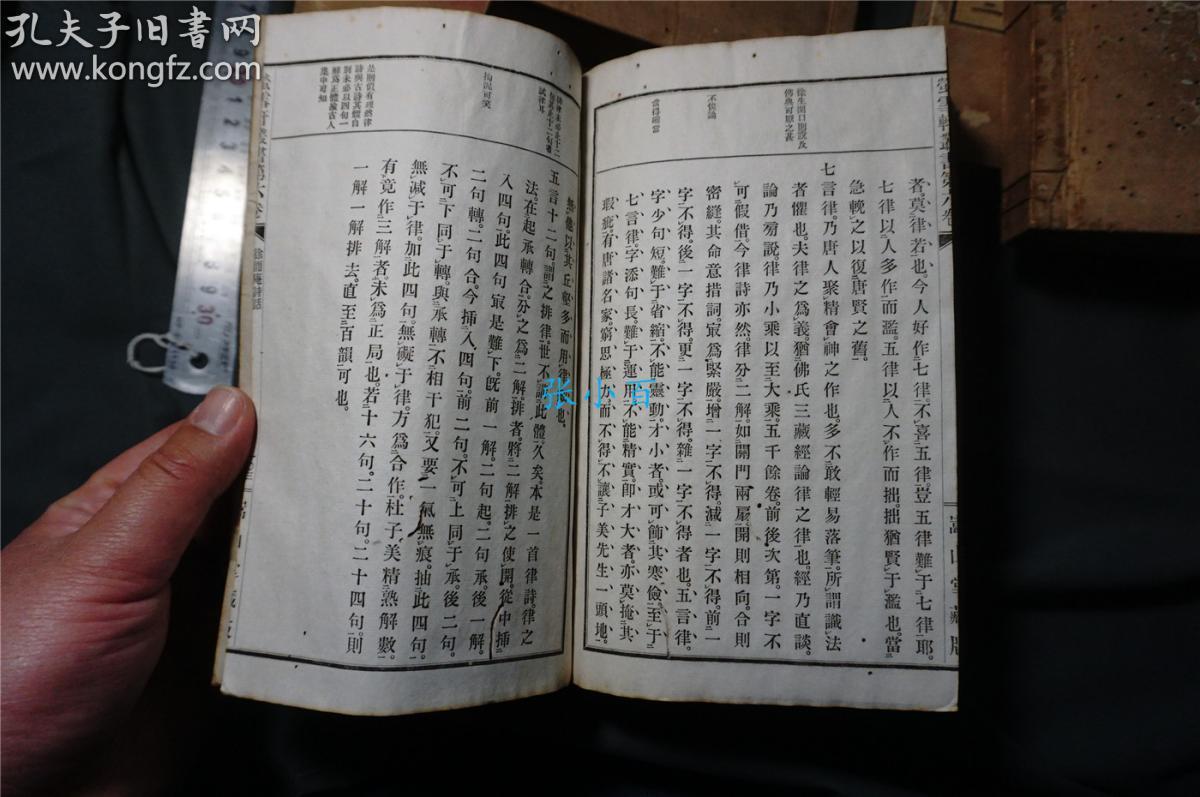 孔夫子旧书网
www.kongfz.com
徐生開口則說及
不侫論
當得確當
者莫律若也今人好作七律不喜五律豈五律難于七律耶
七律以人多作而濫五律以人不作而拙拙猶賢于濫也當
急輓之以復唐賢之舊
七言律乃唐人聚精會神之作也多不敢輕易落筆所謂識法
者懼也夫律之爲義猶佛氏三藏經論律之律也經乃直談
論乃旁說律乃小乘以至大乘五千餘卷前後次第一字不
可假借今律詩亦然律分二解如關門兩扇開則相向合則
密縫其命意措詞㝡爲緊嚴增一字不得減一字不得前一
字不得後一字不得更一字不得雜一字不得者也五言律
字少句短難于省縮不能靈動才小者或可飾其寒儉至于
七言律字添句長難于運用不能精實卽才大者亦莫掩其
瑕疵有唐諸名家窮思極力而不得不讓子美先生一頭地
嵩山堂藏版
拘泥可笑
是則假有理然律
詩與古詩其體自
別未必以四句一
解爲正體論古人
集中可知
無他以其丘壑多而用律也
五言十二句謂之排律世不講此體久矣本是一首律詩律之
法在起承轉合分之爲二解排者將二解排之使開從中插
入四句此四句㝡是難下旣前一解二句起二句承後一解
二句轉二句合今插入四句前二句不可上同于承後二句
不可下同于轉與承轉不相干犯又要一氣無痕抽此四句
無減于律加此四句無礙于律方爲合作杜子美精熟解數
有竟作三解者未爲正局也若十六句二十句二十四句則
一解一解排去直至百韻可也
徐而庵詩話
张小百